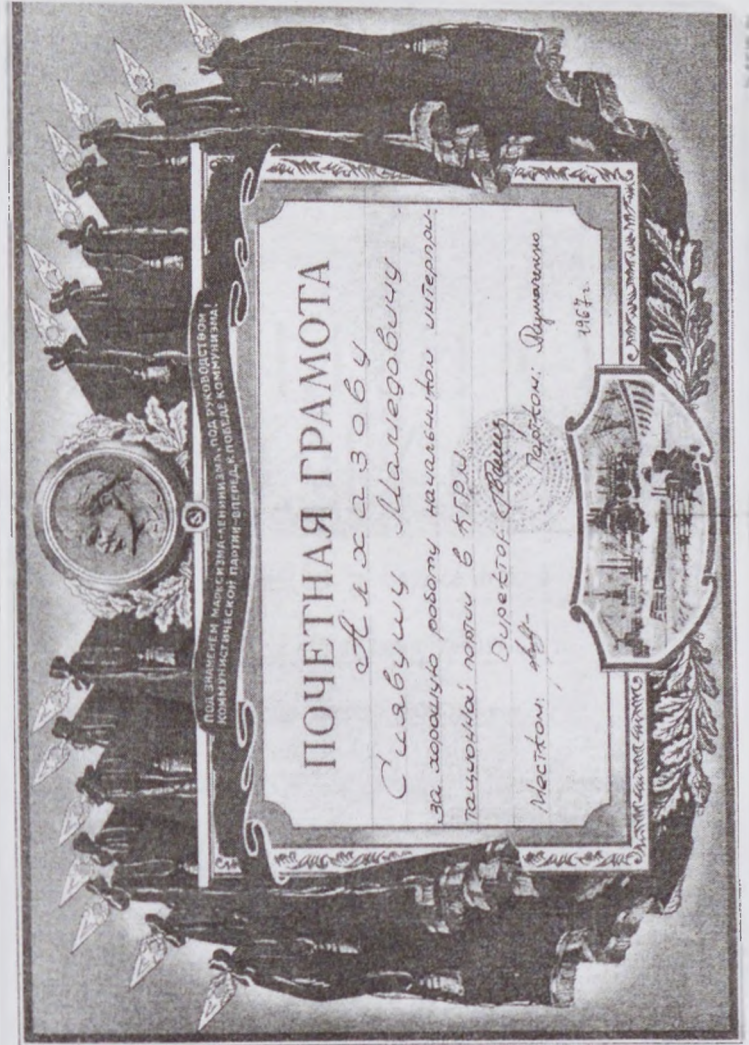 ПОД ЗНАМЕНЕМ МАРКСИЗМА-ЛЕНИНИЗМА, ПОД РУКОВОДСТВОМ
КОММУНИСТИЧЕСКОЙ ПАРТИИ-ВПЕРЕД, К ПОБЕДЕ КОММУНИЗМА!
ПОЧЕТНАЯ ГРАМОТА
Алхазову
Сиявушу Мамедовичу
за хорошую работу начальником интерпри-
тационной партии в КГРМ.
Директор:
Местком: Партком:
1967 г.